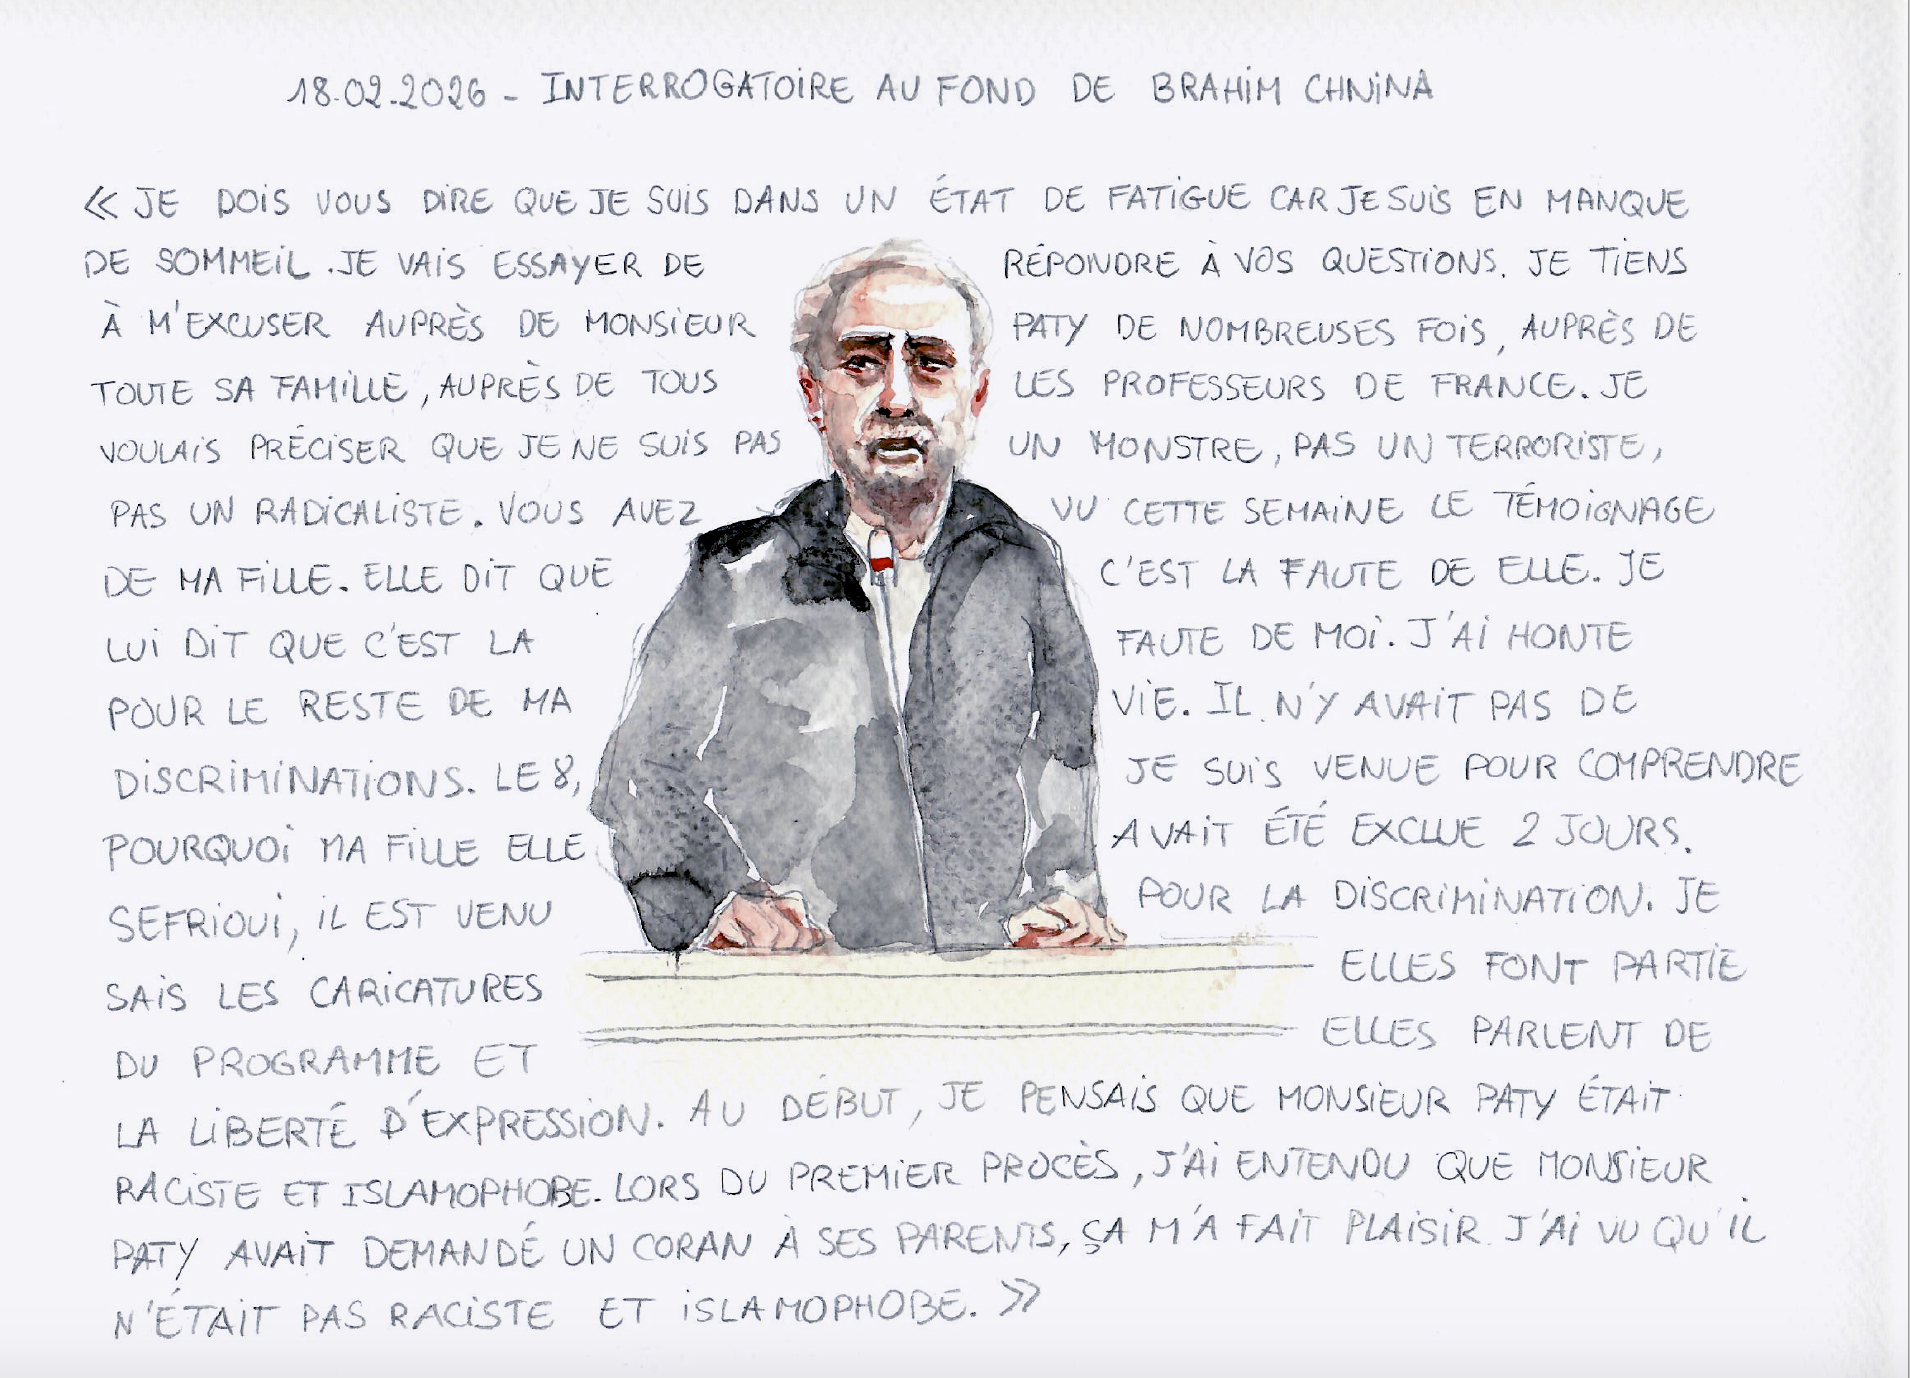 18.02.2026 - INTERROGATOIRE AU FOND DE BRAHIM CHNINA
« JE DOIS VOUS DIRE QUE JE SUIS DANS UN ÉTAT DE FATIGUE CAR JE SUIS EN MANQUE
DE SOMMEIL. JE VAIS ESSAYER DE RÉPONDRE À VOS QUESTIONS. JE TIENS
À M'EXCUSER AUPRÈS DE MONSIEUR PATY DE NOMBREUSES FOIS, AUPRÈS DE
TOUTE SA FAMILLE, AUPRÈS DE TOUS LES PROFESSEURS DE FRANCE. JE
VOULAIS PRÉCISER QUE JE NE SUIS PAS UN MONSTRE, PAS UN TERRORISTE,
PAS UN RADICALISTE. VOUS AVEZ VU CETTE SEMAINE LE TÉMOIGNAGE
DE MA FILLE. ELLE DIT QUE C'EST LA FAUTE DE ELLE. JE
LUI DIT QUE C'EST LA FAUTE DE MOI. J'AI HONTE
POUR LE RESTE DE MA VIE. IL N'Y AVAIT PAS DE
DISCRIMINATIONS. LE 8, JE SUIS VENUE POUR COMPRENDRE
POURQUOI MA FILLE ELLE AVAIT ÉTÉ EXCLUE 2 JOURS.
SEFRIOUI, IL EST VENU POUR LA DISCRIMINATION. JE
SAIS LES CARICATURES ELLES FONT PARTIE
DU PROGRAMME ET ELLES PARLENT DE
LA LIBERTÉ D'EXPRESSION. AU DÉBUT, JE PENSAIS QUE MONSIEUR PATY ÉTAIT
RACISTE ET ISLAMOPHOBE. LORS DU PREMIER PROCÈS, J'AI ENTENDU QUE MONSIEUR
PATY AVAIT DEMANDÉ UN CORAN À SES PARENTS, ÇA M'A FAIT PLAISIR. J'AI VU QU'IL
N'ÉTAIT PAS RACISTE ET ISLAMOPHOBE. »